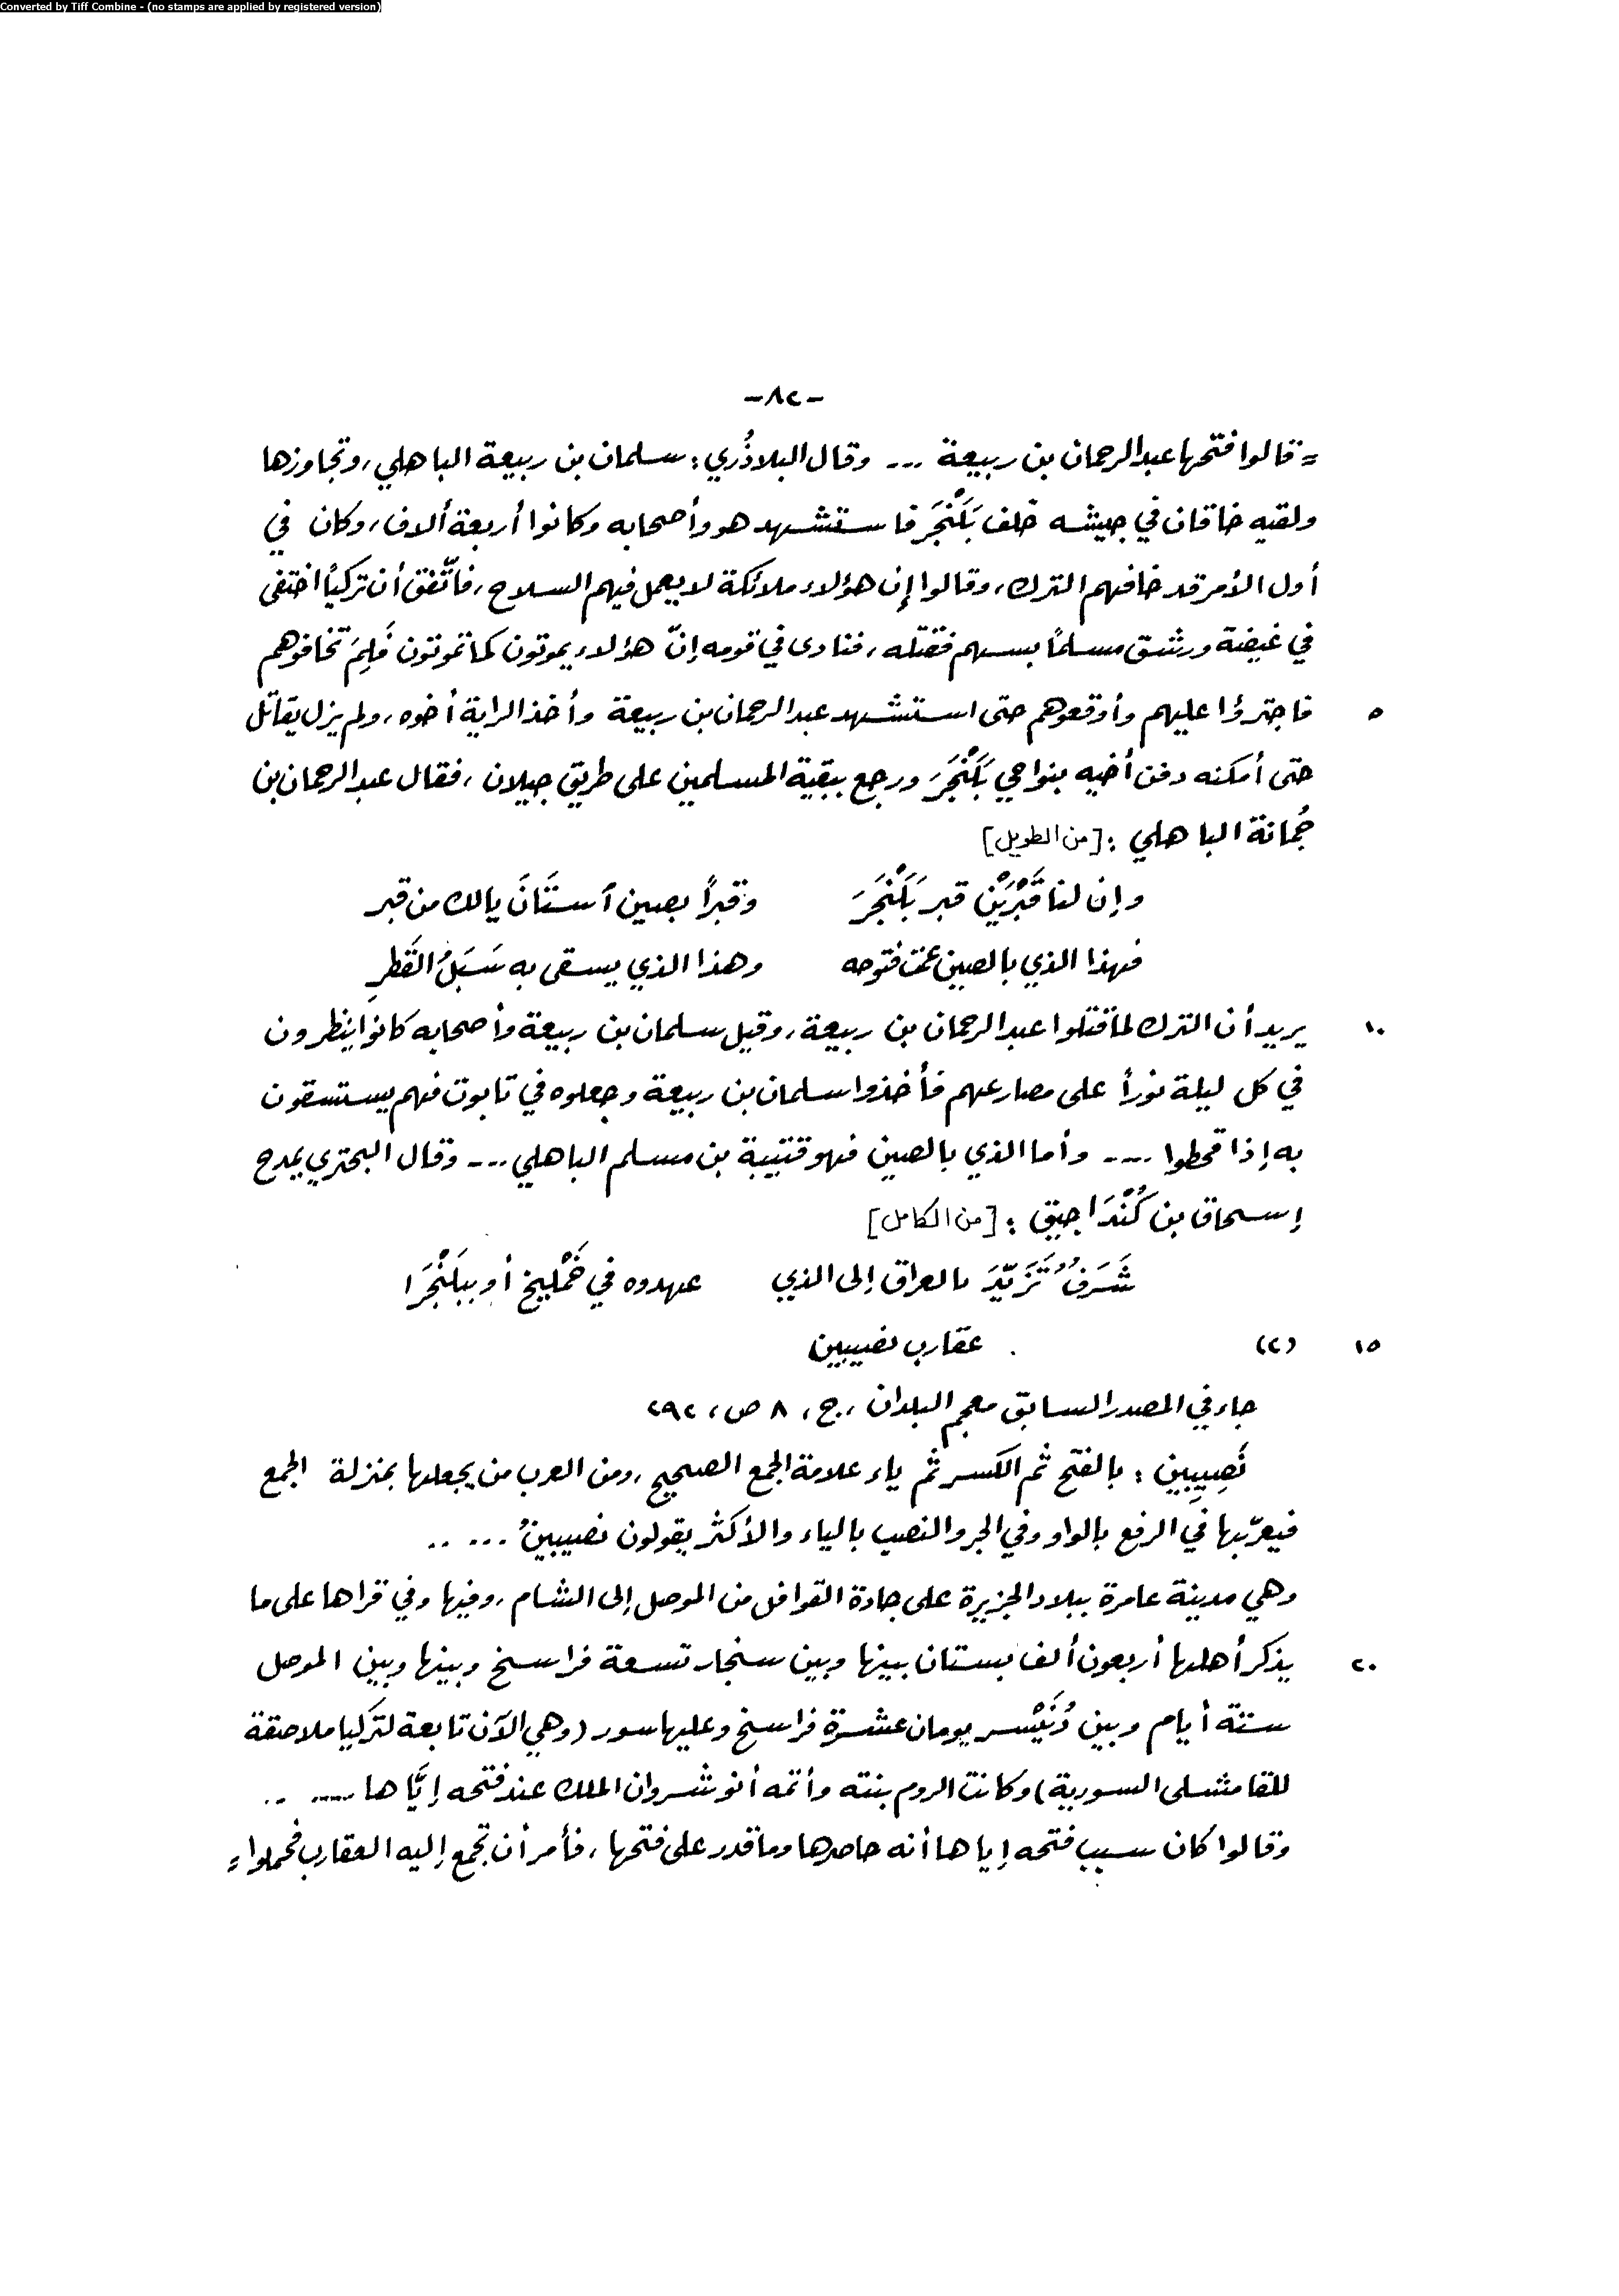 Converted by Tiff Combine - (no stamps are applied by registered version)
-٨٢-
= قالوا فتحها عبد الرحمان بن ربيعة ... وقال البلاذُري: سلمان بن ربيعة الباهلي، وتجاوزها
ولقيه خاقان في جيشه خلف بَلَنْجَرَ فاستشهد هو وأصحابه وكانوا أربعة ألاف، وكان في
أول الأمر قد خافهم الترك، وقالوا إن هؤلاء ملائكة لا يعمل فيهم السلاح، فاتّفق أن تركياً اختفى
في غيضة ورشق مسلماً بسهم فقتله، فنادى في قومه إنّ هؤلاء يموتون كما تموتون فَلِمَ تخافوهم
٥ فاجترؤا عليهم وأوقعوهم حتى استشهد عبد الرحمان بن ربيعة وأخذ الراية أخوه، ولم يزل يقاتل
حتى أمكنه دفن أخيه بنواحي بَلَنْجَرَ ورجع ببقية المسلمين على طريق جيلان، فقال عبد الرحمان بن
جُمانة الباهلي: [من الطويل]
وإن لنا قَبْرَيْن قبر بَلَنْجَرَ وقبراً بصين آستَانَ يالك من قبر
فهذا الذي بالصين عمّت فتوحه وهذا الذي يسقى به سَبَلُ القَطرِ
١٠ يريد أن الترك لما قتلوا عبد الرحمان بن ربيعة، وقيل سلمان بن ربيعة وأصحابه كانوا ينظرون
في كل ليلة نوراً على مصارعهم فأخذوا سلمان بن ربيعة وجعلوه في تابوت فهم يستسقون
به إذا قحطوا .... وأما الذي بالصين فهو قتيبة بن مسلم الباهلي ... وقال البحتري يمدح
إسحاق بن كُنْدَاجيق: [من الكامل]
شَرَفٌ تَزَيّدَ بالعراق إلى الذي عهدوه في خَمْليخ أو ببَلَنْجَرَا
١٥ (٢) عقارب نصيبين
جاء في المصدر السابق معجم البلدان، ج، ٨ ص، ٢٩٢
نَصِيبِين: بالفتح ثم الكسر ثم ياء علامة الجمع الصحيح، ومن العرب من يجعلها بمنزلة الجمع
فيعرّبها في الرفع بالواو وفي الجر والنصب بالياء والأكثر يقولون نصيبينُ .....
وهي مدينة عامرة ببلاد الجزيرة على جادة القوافل من الموصل إلى الشام، وفيها وفي قراها على ما
٢٠ يذكر أهلها أربعون ألف بستان بينها وبين سنجار تسعة فراسخ وبينها وبين الموصل
ستة أيام وبين دُنَيْسر يومان عشرة فراسخ وعليها سور (وهي الآن تابعة لتركيا ملاصقة
للقامشلى السورية) وكانت الروم بنته وأتمه أنوشروان الملك عند فتحه إيَّاها ......
وقالوا كان سبب فتحه إياها أنه حاصرها وما قدر على فتحها، فأمر أن تجمع إليه العقارب فحملوا =